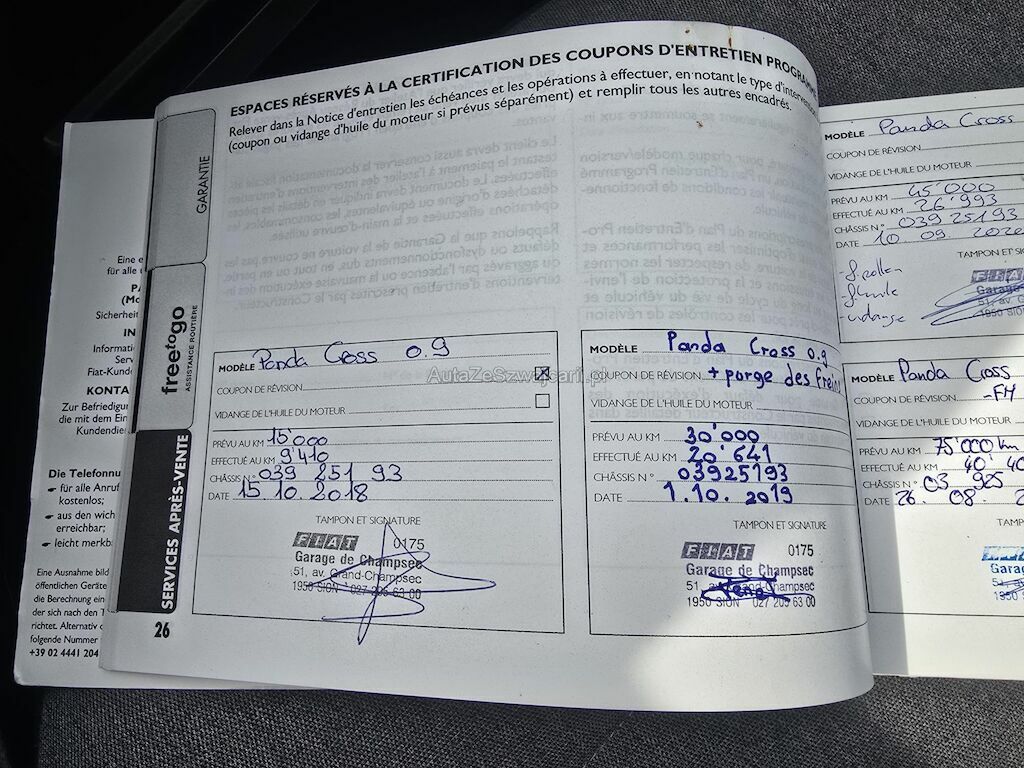 ESPACES RÉSERVÉS À LA CERTIFICATION DES COUPONS D'ENTRETIEN PROGRAMMÉ
Relever dans la Notice d'entretien les échéances et les opérations à effectuer, en notant le type d'intervention
(coupon ou vidange d'huile du moteur si prévus séparément) et remplir tous les autres encadrés.
GARANTIE
freetogo
ASSISTANCE ROUTIÈRE
SERVICES APRÈS-VENTE
26
MODÈLE Panda Cross 0.9
COUPON DE RÉVISION
VIDANGE DE L'HUILE DU MOTEUR
PRÉVU AU KM 15'000
EFFECTUÉ AU KM 9'410
CHÂSSIS N° 039 251 93
DATE 15.10.2018
TAMPON ET SIGNATURE
FIAT 0175
Garage de Champsec
51, av. Grand-Champsec
1950 SION 027 205 63 00
MODÈLE Panda Cross 0.9
COUPON DE RÉVISION + porge des freins
VIDANGE DE L'HUILE DU MOTEUR
PRÉVU AU KM 30'000
EFFECTUÉ AU KM 20'641
CHÂSSIS N° 03925193
DATE 1.10.2019
TAMPON ET SIGNATURE
FIAT 0175
Garage de Champsec
51, av. Grand-Champsec
1950 SION 027 205 63 00
MODÈLE Panda Cross
COUPON DE RÉVISION
VIDANGE DE L'HUILE DU MOTEUR
PRÉVU AU KM 45'000
EFFECTUÉ AU KM 26'993
CHÂSSIS N° 03925193
DATE 10.09.2020
TAMPON ET SI
- f. pollen
- f. huile
- vidange
FIAT
Garage
51, av.
1950 SION
MODÈLE Panda Cross
COUPON DE RÉVISION - FH
VIDANGE DE L'HUILE DU MOTEUR
PRÉVU AU KM 75'000 km
EFFECTUÉ AU KM 40'40
CHÂSSIS N° 03 925
DATE 26.08.2
TAMP
FIAT
Garag
1950 S
Eine e
für alle
Sicherheit
IN
Informati
Serv
Fiat-Kunde
KONTA
Zur Befriedigun
die mit dem Ein
Kundendien
Die Telefonnu
für alle Anruf
kostenlos;
aus den wich
erreichbar;
leicht merkb
Eine Ausnahme bild
öffentlichen Geräte
die Berechnung eine
der sich nach den T
richtet. Alternativ d
folgende Nummer
+39 02 4441 204
AutaZeSzwajcarii.pl